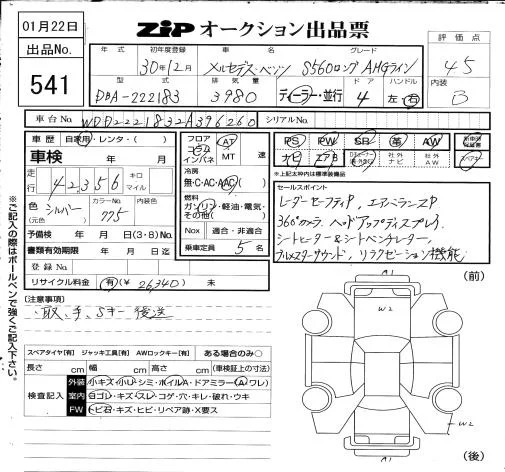 01月22日
ZIP オークション出品票
出品No.
541
年式 初年度登録 車名 グレード
30年12月 メルセデス・ベンツ S560ロング AMGライン
評価点
4.5
内装
B
型式 排気量 ドア ハンドル
DBA-222183 3980 ディーラー・並行 4 左・右
車台No. WDD2221832A396260 シリアルNo.
車歴 自家用・レンタ・( )
車検 年 月
走行 42356 キロ マイル
色 シルバー カラーNo. 775 内装色
(元色)
予備検 年 月 日(3・8)No.
書類有効期限 年 月 日迄
登録No.
リサイクル料金 有(¥ 26340) 未
フロア コラム インパネ AT MT 速
冷房
無・C・AC・AAC( )
燃料
ガソリン・軽油・電気・その他( )
Nox 適合・非適合
乗車定員 5 名
PS PW SR 革 AW
ナビ エアB 社外ナビ 社外AW
※上記太枠内は標準装備品
セールスポイント
レーダーセーフティP、エアバランスP
360°カメラ、ヘッドアップディスプレイ
シートヒーター&シートベンチレーター、
ブルメスターサウンド、リラクゼーション機能
※ご記入の際はボールペンで強くご記入下さい。
(注意事項)
・取、手、Sキー後送
(前)
A1
W2
スペアタイヤ[有] ジャッキ工具[有] AWロックキー[有] ある場合のみ○
長さ cm 幅 cm 高さ cm (車検証上の寸法)
検査記入
外装 小キズ・小U・シミ・ホイルA・ドアミラー(A ワレ)
室内 ヨゴレ・キズ・スレ・コゲ・穴・キレ・破れ・ウキ
FW トビ石・キズ・ヒビ・リペア跡・X要ス
W2
A1
(後)